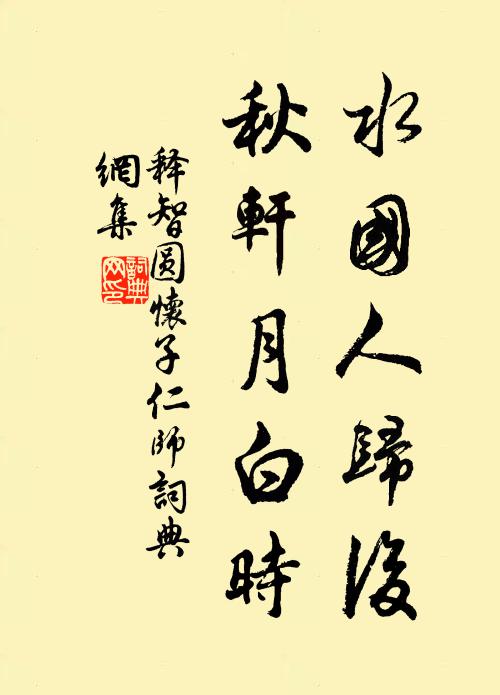 水國人歸後
秋軒月白時
释智圆懷子仁師詞典
網集
詞典
网印